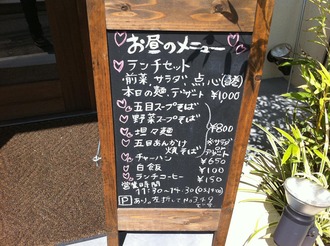 お昼のメニュー
ランチセット
・前菜、サラダ、点心
本日の麺、デザート ¥1,000
五目スープそば
野菜スープそば
坦々麺
¥800
五目あんかけ
焼そば
サラダ
or
デザート
チャーハン ¥650
白飯 ¥100
ランチコーヒー ¥150
営業時間
11:30~14:30
P あり。左折して